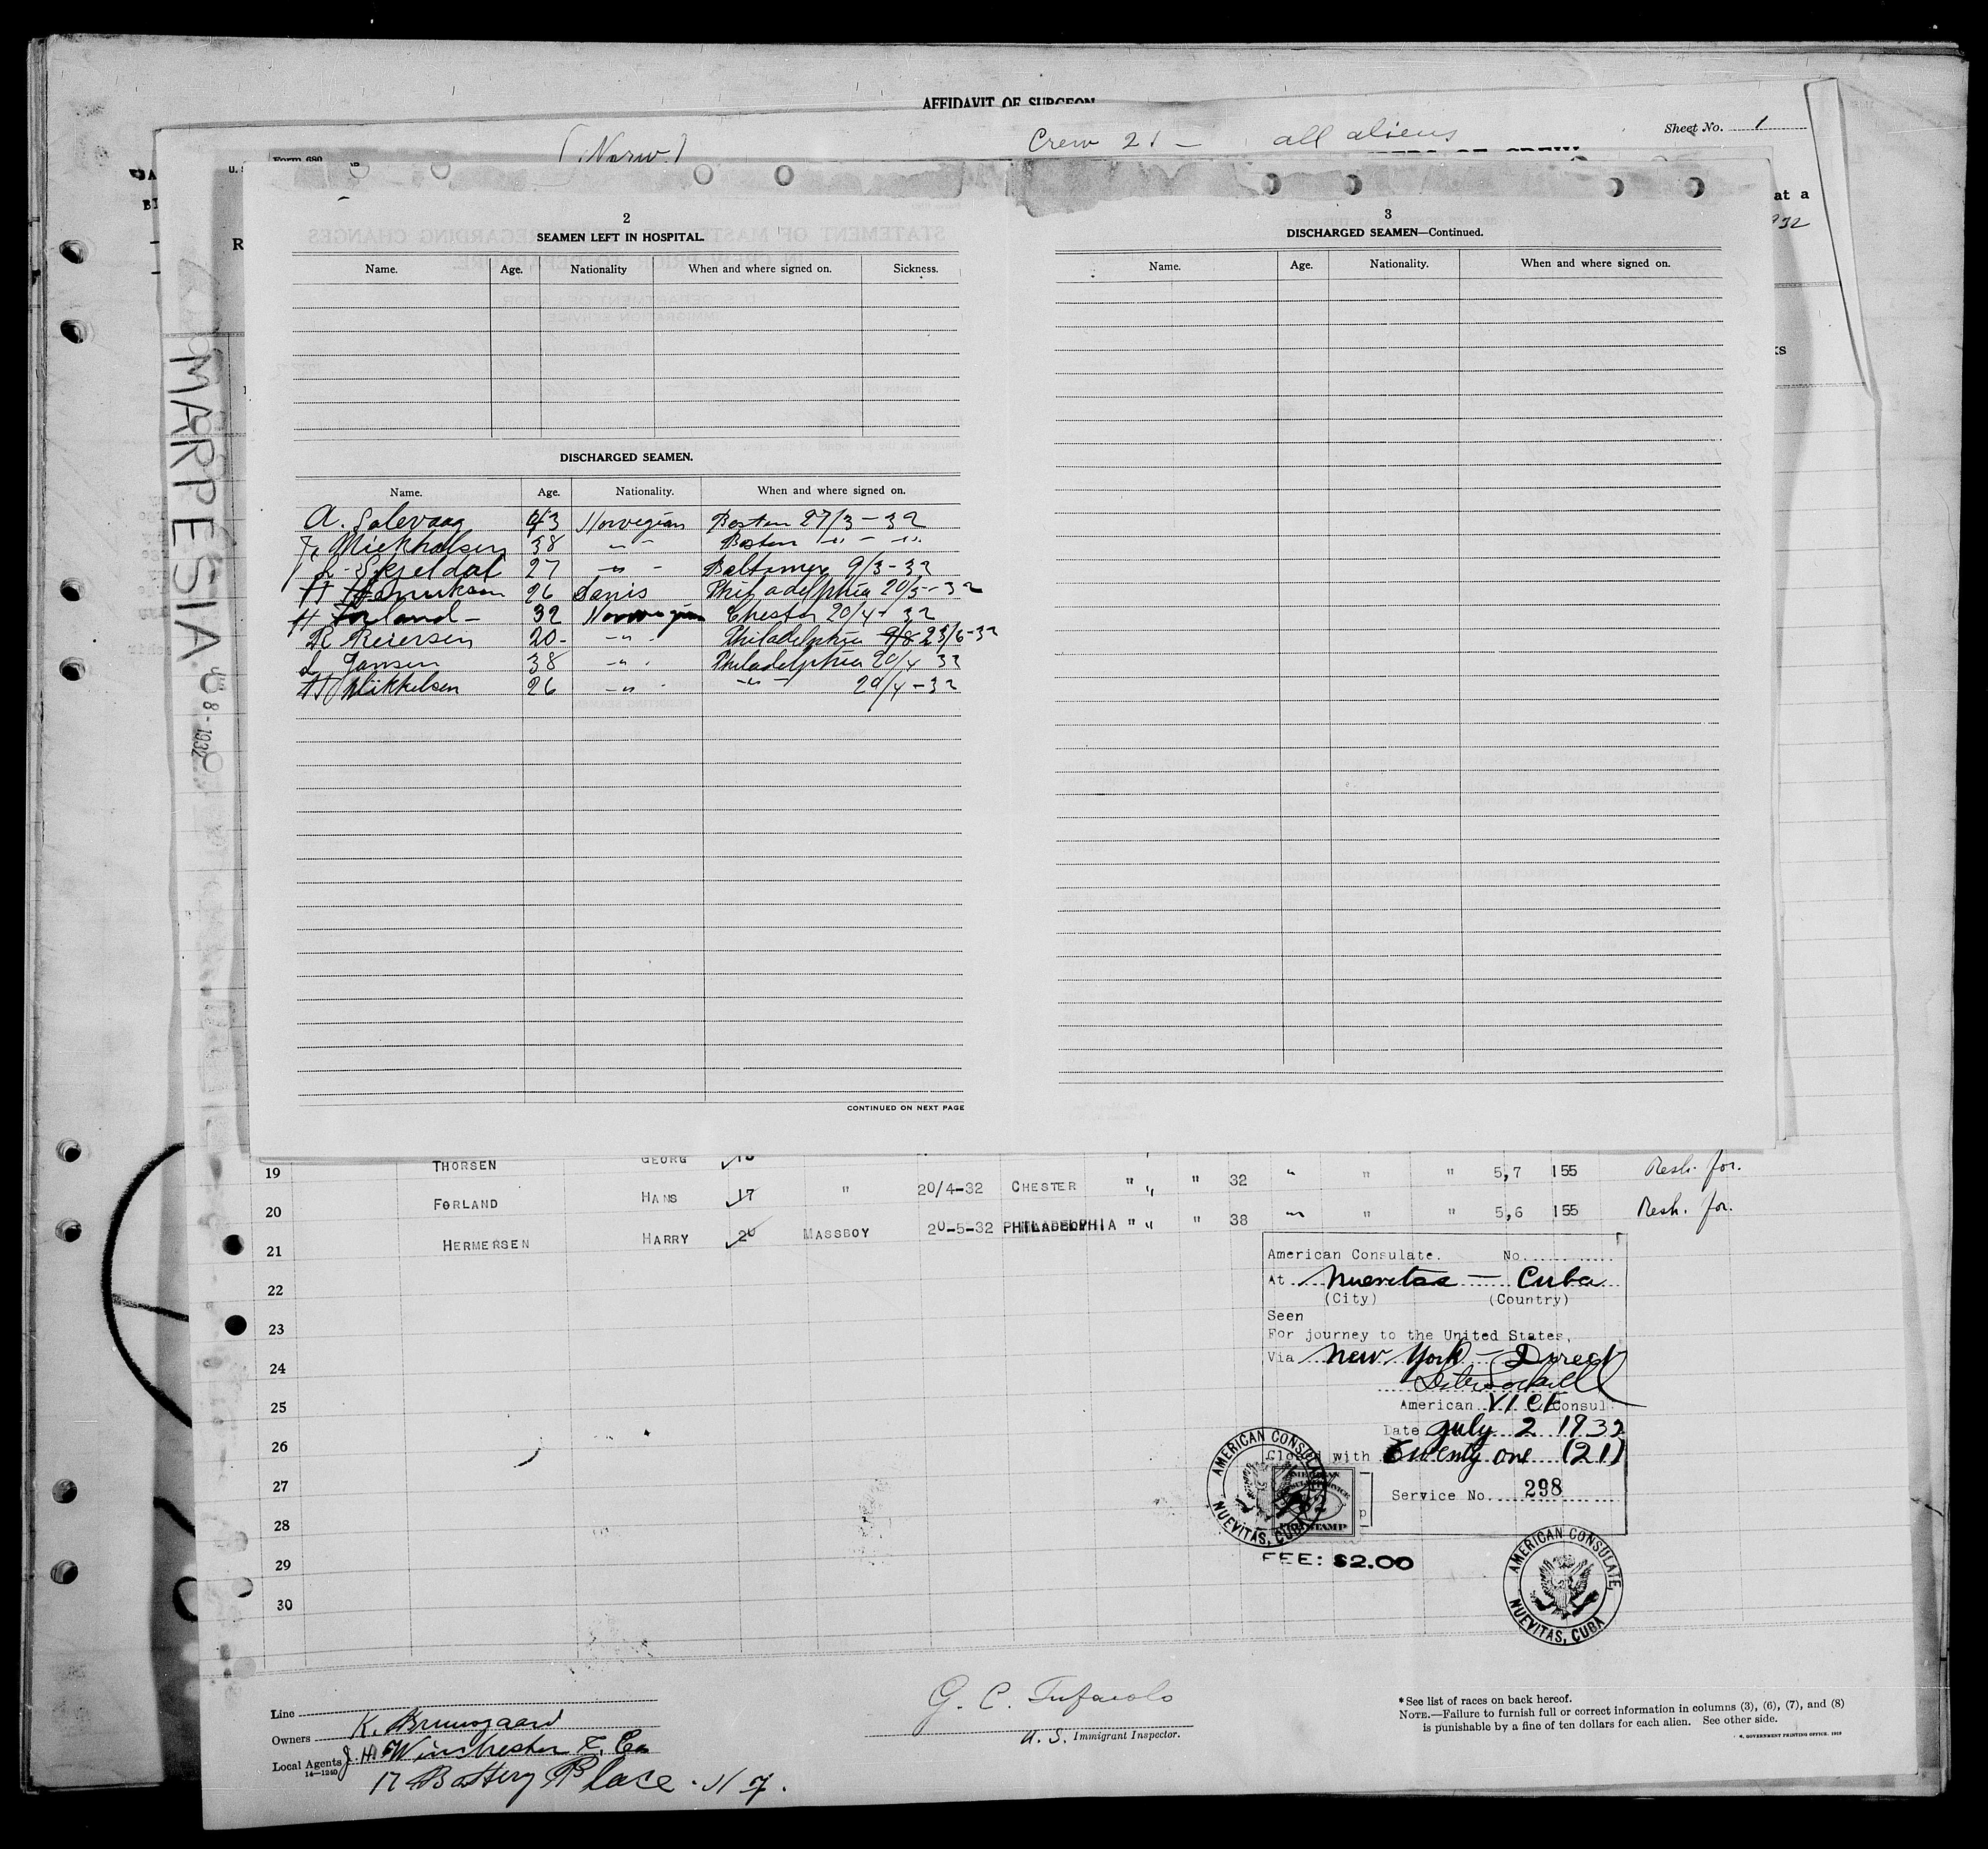 AFFIDAVIT OF SURGEON
Sheet No. 1
(Norw.)
Crew 21 - all aliens
Form 680
U. S
at a
932
R
ks
MARPESIA
8 - 1932
2
SEAMEN LEFT IN HOSPITAL.
Name. Age. Nationality When and where signed on. Sickness.
DISCHARGED SEAMEN.
Name. Age. Nationality. When and where signed on.
A. Salevaag 43 Norwegian Boston 27/3-32
Mickhalsen 38 -"- Boston -"- -"-
Skjeldal 27 -"- Baltimore 9/3-32
H 26 Danis Philadelphia 20/5-32
H Forland - 32 Norwegian Chester 20/4-32
R Reiersen 20- -"- Philadelphia 9/8 23/6-32
L Jansen 38 -"- Philadelphia 20/4 32
H Mikkelsen 26 -"- -"- 20/4-32
CONTINUED ON NEXT PAGE
3
DISCHARGED SEAMEN—Continued.
Name. Age. Nationality. When and where signed on.
19 THORSEN GEORG " 5,7 155 Resh. for.
20 FORLAND HANS 17 " 20/4-32 CHESTER " " " 32 " " " 5,6 155 Resh. for.
21 HERMERSEN HARRY 20 MASSBOY 20-5-32 PHILADELPHIA " " " 38
22
23
24
25
26
27
28
29
30
American Consulate. No.
At Nuevitas - Cuba
(City) (Country)
Seen
For journey to the United States,
Via New York - Direct
American VICE Consul.
Date July 2 1932
Closed with Twenty one (21)
Service No. 298
AMERICAN CONSULATE, NUEVITAS, CUBA
FEE: $2.00
AMERICAN CONSULATE, NUEVITAS, CUBA
Line
Owners K. Bruusgaard
Local Agents J. H. Winchester & Co
14—1240
17 Battery Place. N Y.
G. C. Tufarolo
U. S. Immigrant Inspector.
*See list of races on back hereof.
NOTE.—Failure to furnish full or correct information in columns (3), (6), (7), and (8)
is punishable by a fine of ten dollars for each alien. See other side.
GOVERNMENT PRINTING OFFICE